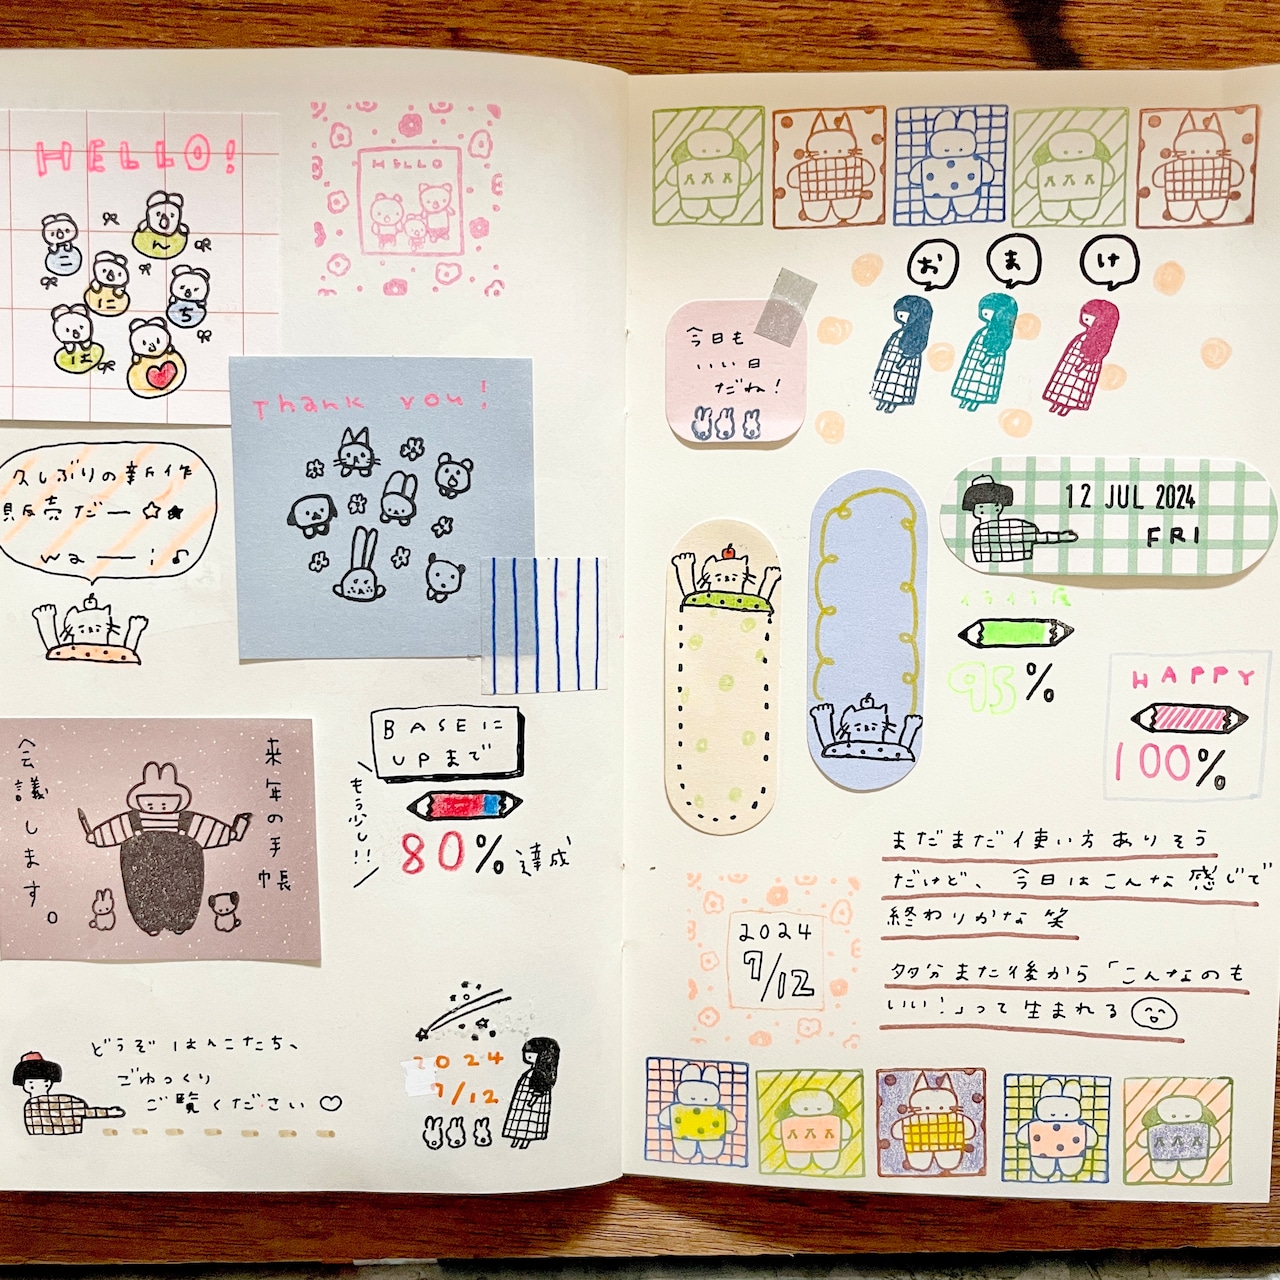 HELLO!
こ
ん
に
ち
は
HELLO
Thank you!
久しぶりの新作
販売だー☆★
wa——i♪
BASEに
UPまで
もう少し!!
80%達成
来年の手帳
会議します。
どうぞはんこたち、
ごゆっくり
ご覧ください♡
2024
7/12
おまけ
今日も
いい日
だね!
12 JUL 2024
FRI
イライラ度
95%
HAPPY
100%
まだまだ使い方ありそう
だけど、今日はこんな感じで
終わりかな笑
多分また後から「こんなのも
いい!」って生まれる
2024
7/12